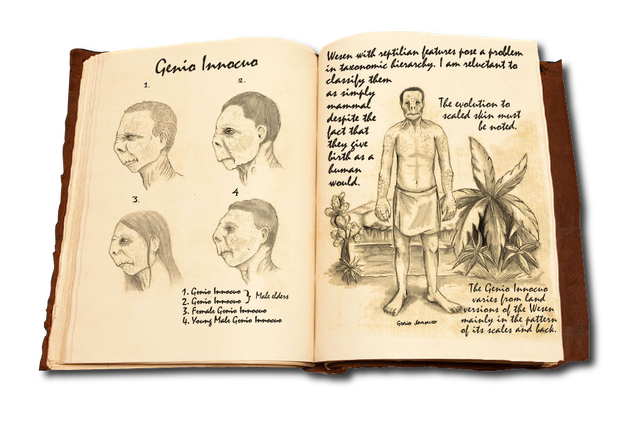 Genio Innocuo
1.
2.
3.
4
1. Genio Innocuo
2. Genio Innocuo
} Male elders
3. Female Genio Innocuo
4. Young Male Genio Innocuo
Wesen with reptilian features pose a problem
in taxonomic hierarchy. I am reluctant to
classify them
as simply
mammal
despite the
fact that
they give
birth as a
human
would.
The evolution to
scaled skin must
be noted.
Genio Innocuo
The Genio Innocuo
varies from land
versions of the Wesen
mainly in the pattern
of its scales and back.